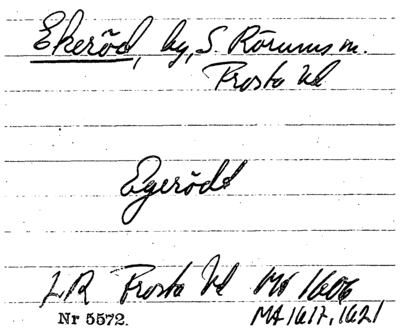 Ekeröd, by, S. Rörums sn.
Frosta hd
Egerödt
LR Frosta hd MA 1606
Nr 5572. MA 1617, 1621